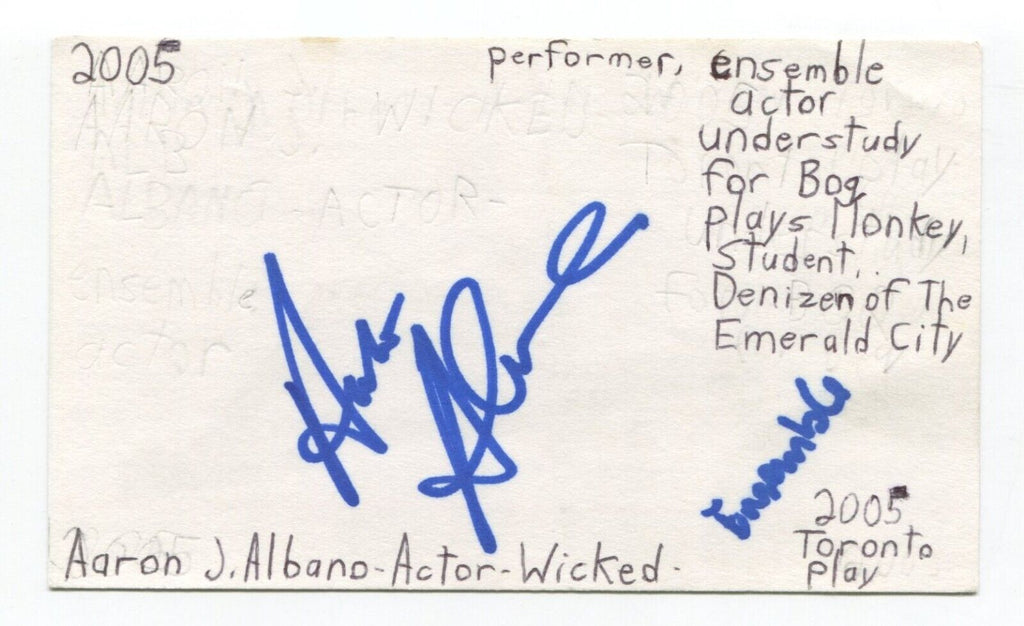 2005
performer, ensemble
actor
understudy
for Boq
plays Monkey,
Student,..
Denizen of The
Emerald City
Ensemble
2005
Toronto
play
Aaron J. Albano-Actor-Wicked-